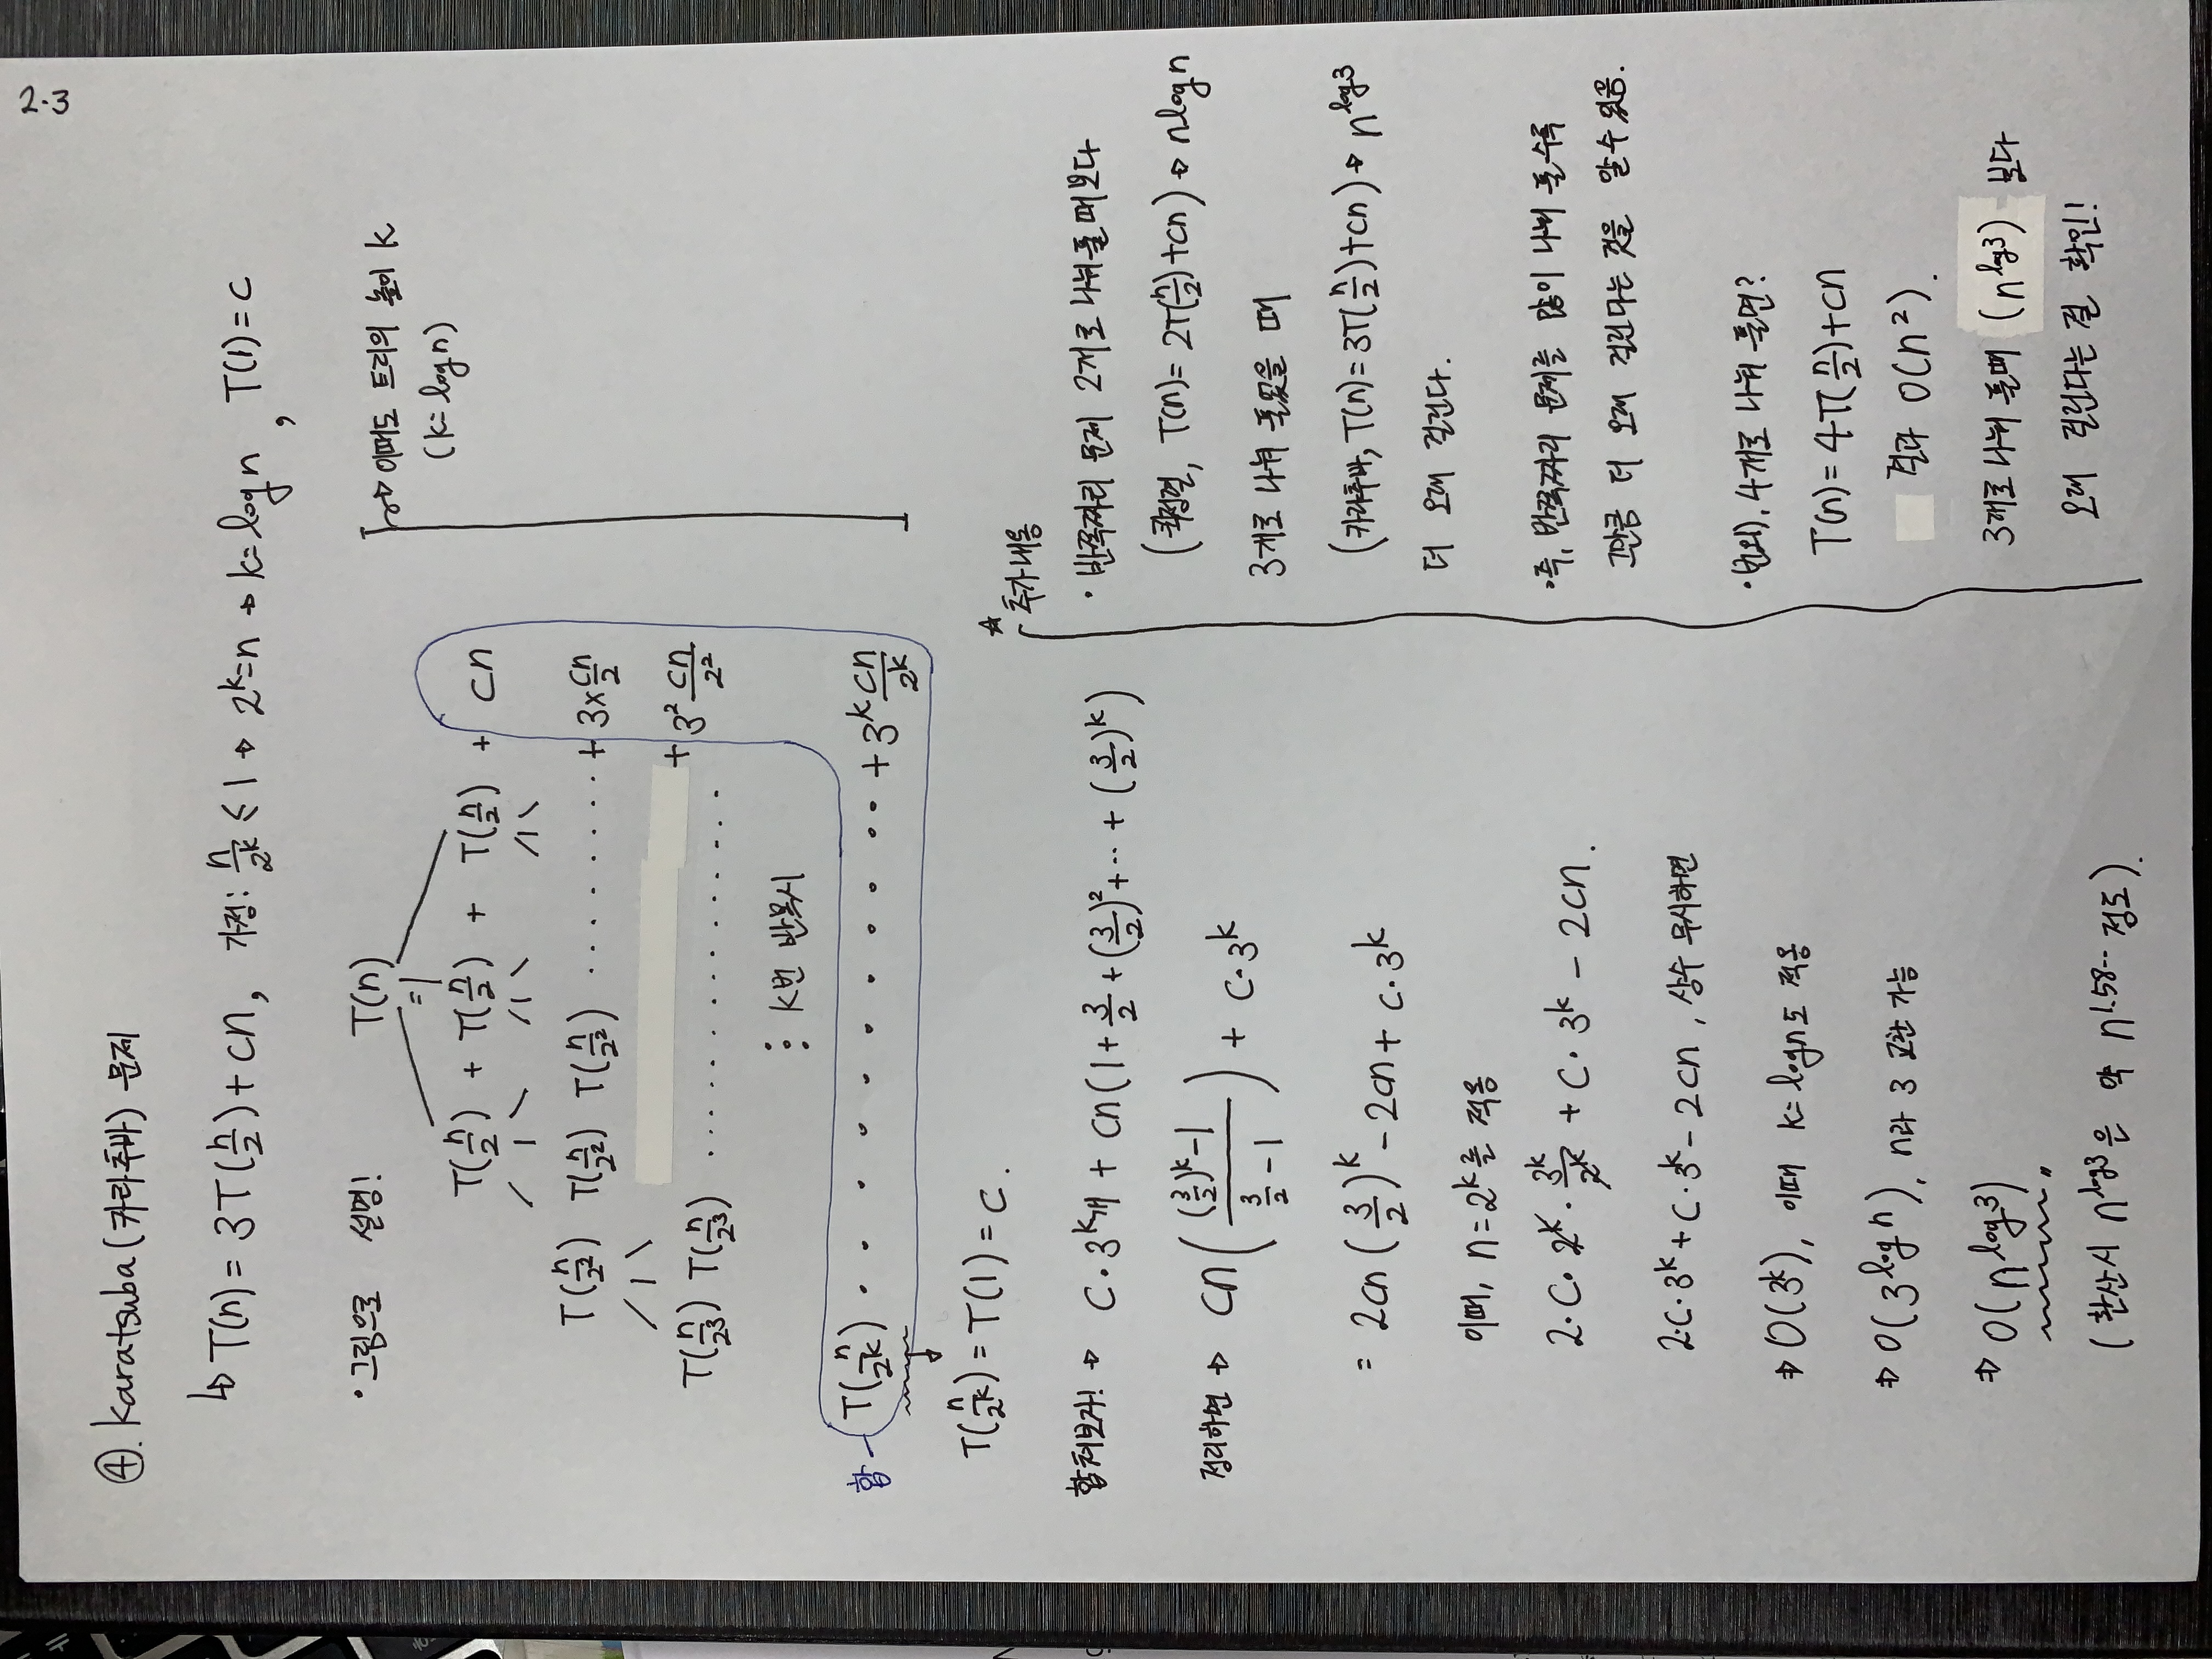 2.3
④. karatsuba(카라추바) 문제
↳ T(n) = 3T(n/2) + cn, 가정: n/2^k ≤ 1 → 2^k=n → k=log n, T(1) = c
• 그림으로 설명!
T(n)
=
T(n/2) + T(n/2) + T(n/2) + cn
T(n/2²) T(n/2²) T(n/2²) ········· + 3×cn/2
T(n/2³) T(n/2³) ·············· + 3² cn/2²
⋮ K번 반복시
합 T(n/2^k) · · · · · · · · · · · + 3^k cn/2^k
T(n/2^k) = T(1) = c.
→ 이때도 트리의 높이 k
(k=log n)
합쳐보자! → c·3^k개 + cn(1+3/2+(3/2)²+··+(3/2)^k)
정리하면 → cn(((3/2)^k-1)/(3/2-1)) + c·3^k
= 2cn(3/2)^k - 2cn + c·3^k
이때, n=2^k를 적용
2·c·2^k·3^k/2^k + c·3^k - 2cn.
2·c·3^k + c·3^k - 2cn, 상수 무시하면
⇒ O(3^k), 이때 k=logn도 적용
⇒ O(3^log n), n과 3 교환 가능
⇒ O(n^log3)
(환산시 n^log3은 약 n^1.58·· 정도).
☆
추가내용
• 반쪽짜리 문제 2개로 나눠 풀 때보다
(퀵정렬, T(n)= 2T(n/2)+cn) → nlogn
3개로 나눠 풀었을 때
(카라추바, T(n)=3T(n/2)+cn) → n^log3
더 오래 걸린다.
• 즉, 반쪽짜리 문제를 많이 나눠 풀수록
그만큼 더 오래 걸린다는 것을 알 수 있음.
• 번외). 4개로 나눠 풀면?
T(n)= 4T(n/2)+cn
결과 O(n²).
3개로 나눠 풀때 (n^log3) 보다
오래 걸린다는 걸 확인!